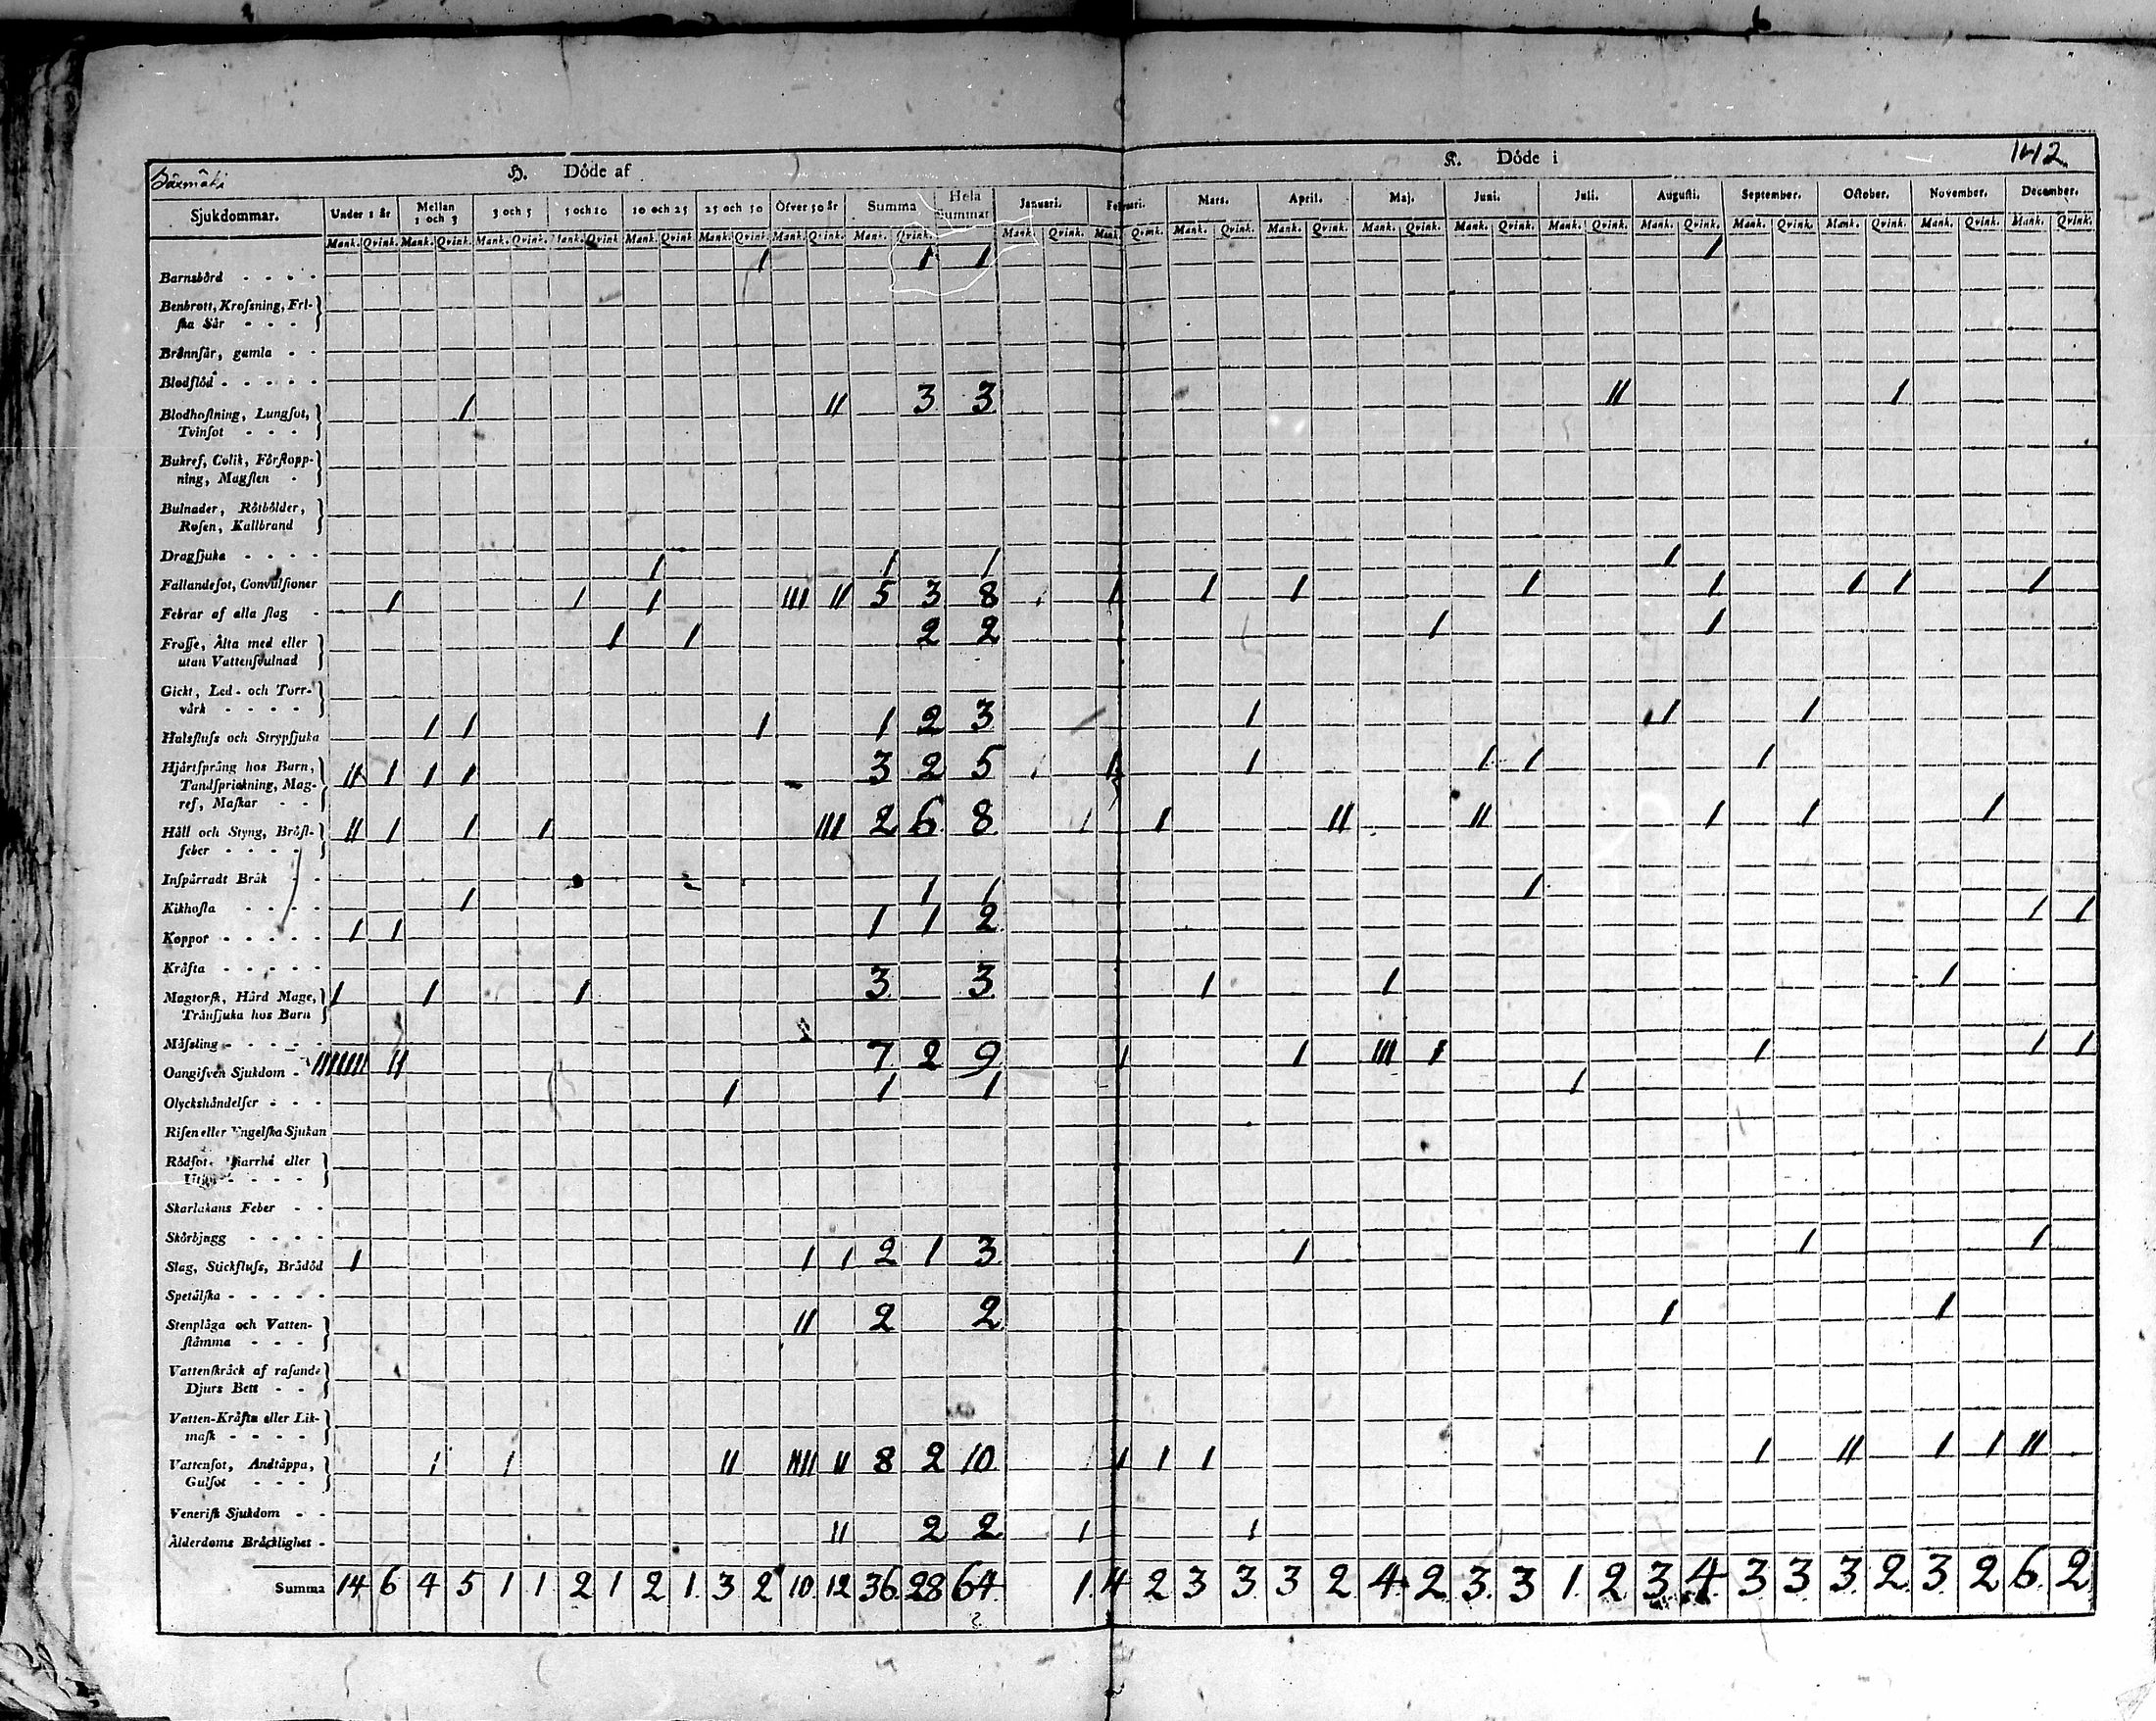 Säxmäki
H. Döde af
K. Döde i
1812.
Sjukdommar. Under 1 år Mellan 1 och 3 3 och 5 5 och 10 10 och 25 25 och 50 Öfver 50 år Summa Hela Summan Januari. Februari. Mars. April. Maj. Juni. Juli. Augusti. September. October. November. December.
Mank. Qvink. Mank. Qvink. Mank. Qvink. Mank. Qvink. Mank. Qvink. Mank. Qvink. Mank. Qvink. Mank. Qvink. Mank. Qvink. Mank. Qvink. Mank. Qvink. Mank. Qvink. Mank. Qvink. Mank. Qvink. Mank. Qvink. Mank. Qvink. Mank. Qvink. Mank. Qvink. Mank. Qvink. Mank. Qvink.
Barnsbörd - - - - 1 1 1 1
Benbrott, Krosning, Fri-
ska Sår - - -
Brännsår, gamla - -
Blodflöd - - - - -
Blodhostning, Lungsot, 1 11 3 3 11 1
Tvinsot - - -
Bukref, Colik, Förstopp-
ning, Magsten -
Bulnader, Rötbölder,
Rosen, Kallbrand
Dragsjuka - - - -
Fallandesot, Convulsioner 1 1 1 1
Febrar af alla slag - 1 1 1 111 11 5 3 8 1 1 1 1 1 1 1 1
Frosse, Älta med eller 1 1 2 2 1 1
utan Vattensvulnad
Gickt, Led- och Torr-
värk - - - -
Halsfluss och Strypsjuka 1 1 1 1 2 3 1 1 1
Hjärtsprång hos Barn, 11 1 1 1 3 2 5 1 1 1 1 1
Tandsprickning, Mag-
ref, Maskar - -
Håll och Styng, Bröst- 11 1 1 1 111 2 6 8 1 11 11 1 1 1
feber - - - -
Inspärradt Bråk - -
Kikhosta - - - - 1 1 1 1
Koppor - - - - - 1 1 1 1 2 1 1
Kräfta - - - - -
Magtorsk, Hård Mage, 1 1 1 3 3 1 1 1
Trånsjuka hos Barn
Mässling - - - - -
Oangifven Sjukdom - 1111111 11 7 2 9 1 1 111 1 1 1 1
Olyckshändelser - - - 1 1 1 1
Risen eller Engelska Sjukan
Rödsot, Diarrhé eller
Skarlakans Feber - -
Skörbjugg - - - -
Slag, Stickfluss, Brådöd 1 1 1 2 1 3 1 1 1
Spetälska - - - - -
Stenplåga och Vatten- 11 2 2 1 1
stämma - - -
Vattenskräck af rasande
Djurs Bett - -
Vatten-Kräfta eller Lik-
mask - - - -
Vattensot, Andtäppa, 1 1 11 11111 11 8 2 10 1 1 1 1 11 1 1 11
Gulsot - - -
Venerisk Sjukdom - -
Ålderdoms Bräcklighet - 11 2 2 1 1
Summa 14 6 4 5 1 1 2 1 2 1. 3 2 10. 12 36. 28 64. 1. 4 2 3 3 3 2 4. 2 3. 3 1. 2 3. 4. 3 3 3. 2. 3 2 6. 2